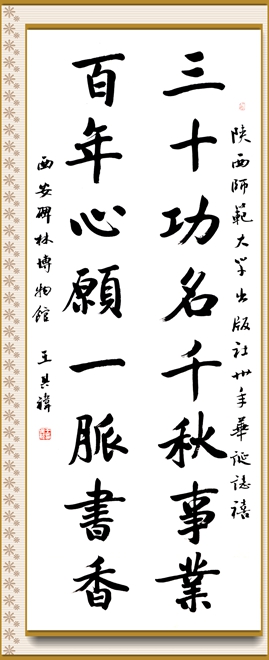 陝西師範大學出版社卅年華誕誌禧
三十功名千秋事業
百年心願一脈書香
西安碑林博物館 王其禕